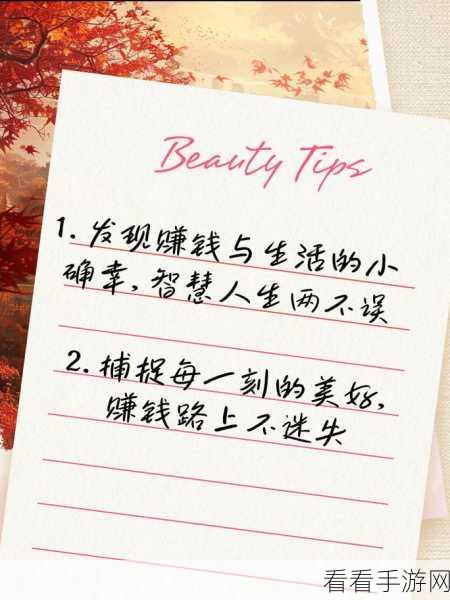 Beauty Tips
1. 发现赚钱与生活的小
确幸,智慧人生两不误
2. 捕捉每一刻的美好,
赚钱路上不迷失
看看手游网